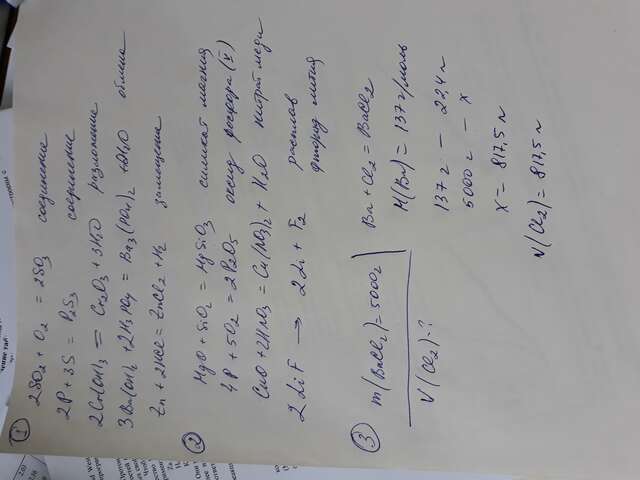 ① 2SO₂ + O₂ = 2SO₃ соединение
2P + 3S = P₂S₃ соединение
2Cr(OH)₃ = Cr₂O₃ + 3H₂O разложение
3Ba(OH)₂ + 2H₃PO₄ = Ba₃(PO₄)₂ + 6H₂O обмена
Zn + 2HCl = ZnCl₂ + H₂ замещение
② MgO + SiO₂ = MgSiO₃ силикат магния
4P + 5O₂ = 2P₂O₅ оксид фосфора (V)
CuO + 2HNO₃ = Cu(NO₃)₂ + H₂O нитрат меди
2LiF → 2Li + F₂ расплав
фторид лития
③ m(BaCl₂) = 5000г
V(Cl₂) - ?
Ba + Cl₂ = BaCl₂
M(Ba) = 137 г/моль
137 г — 22,4 л
5000 г — x
x = 817,5 л
V(Cl₂) = 817,5 л